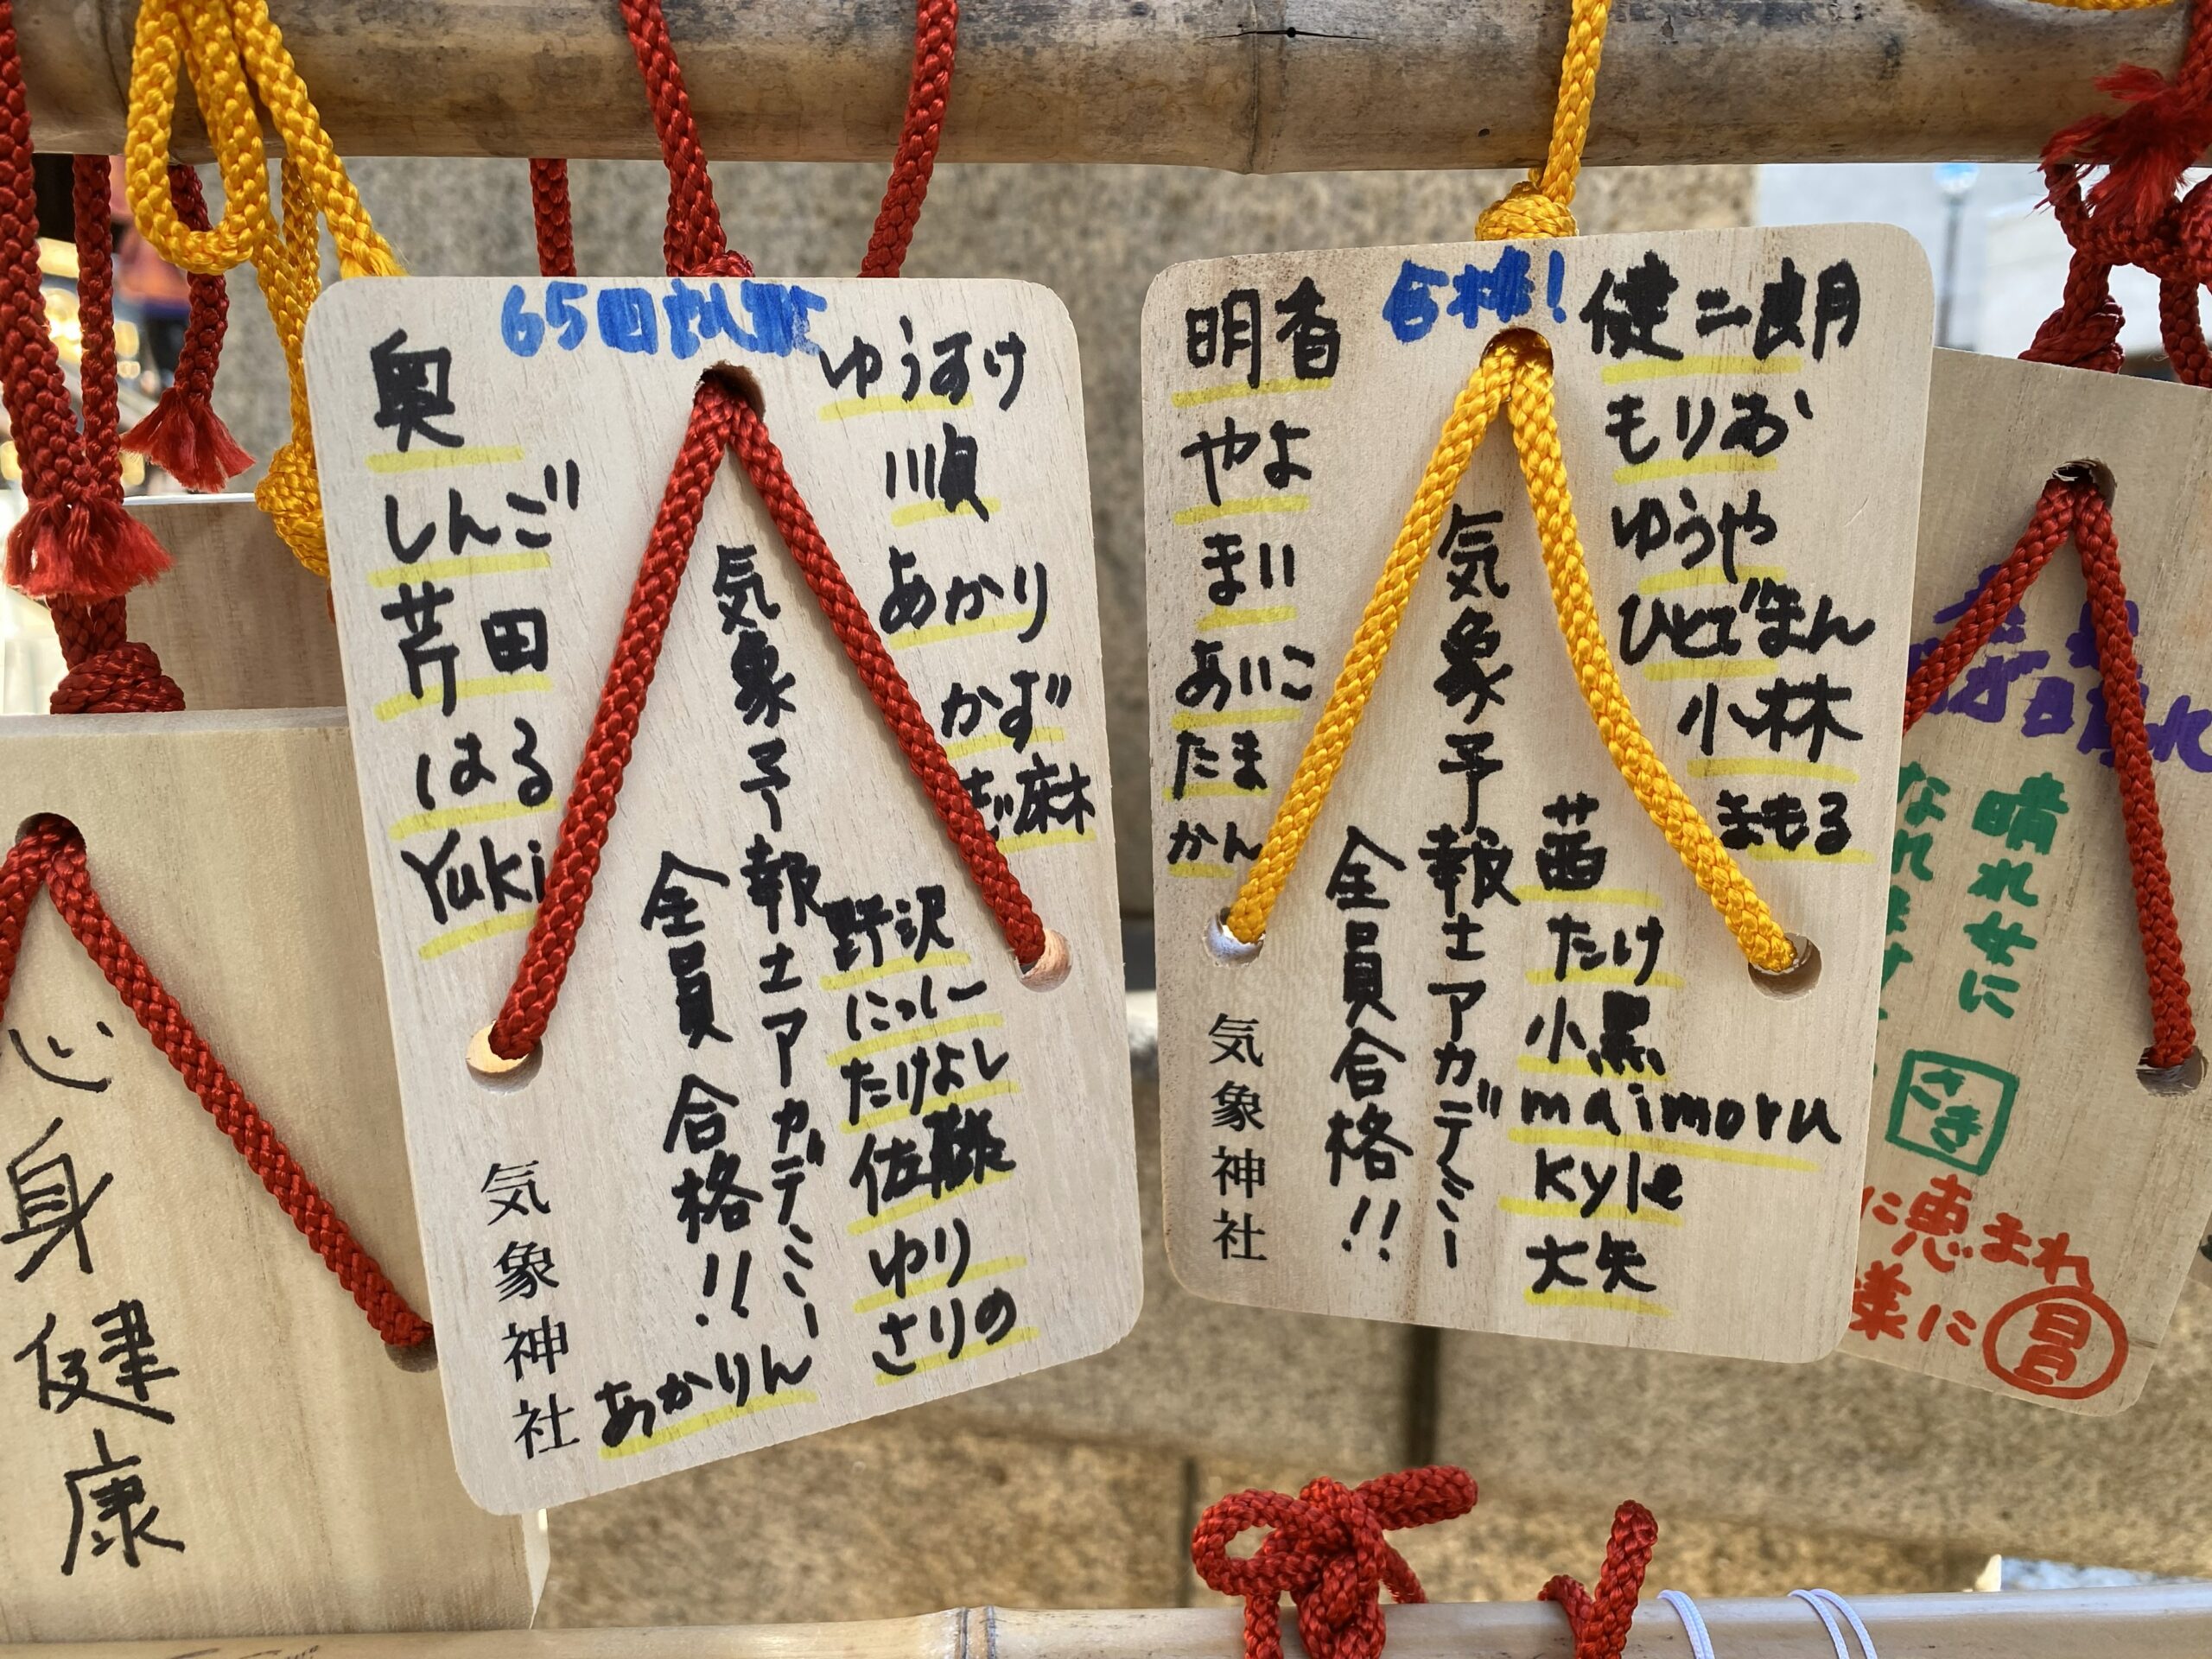 心身健康
65回試験
ゆうすけ
順
あかり
かず
麻
奥
しんご
芹田
はる
Yuki
気象予報士アカデミー
全員合格!!
野沢
にっしー
たけよし
佐藤
ゆり
さりの
あかりん
気象神社
合格!
健二朗
もりお
ゆうや
小林
まもる
明香
やよ
まい
あいこ
たま
かん
気象予報士アカデミー
全員合格!!
茜
たけ
小黒
maimoru
Kyle
大矢
気象神社
晴れ女に
なれます
さき
に恵まれ
様に
昌